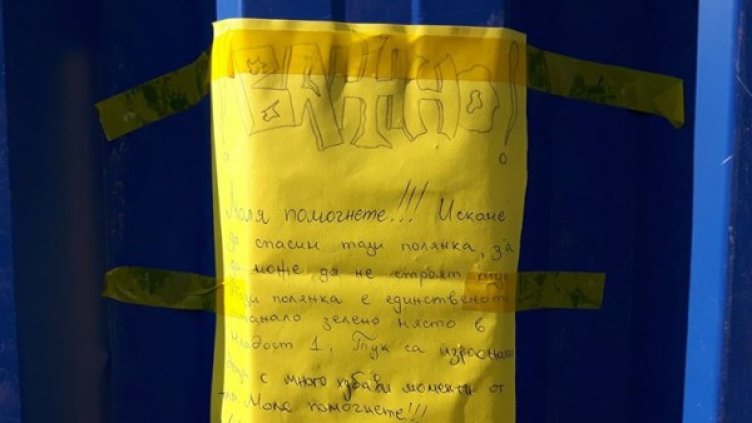 ! ВАЖНО!
Моля помогнете!!! Искаме
да спасим тази полянка, за
да може да не строят тук
тази полянка е единственото
останало зелено място в
Младост 1. Тук са израснали
с много хубави моменти от
Моля помогнете!!!